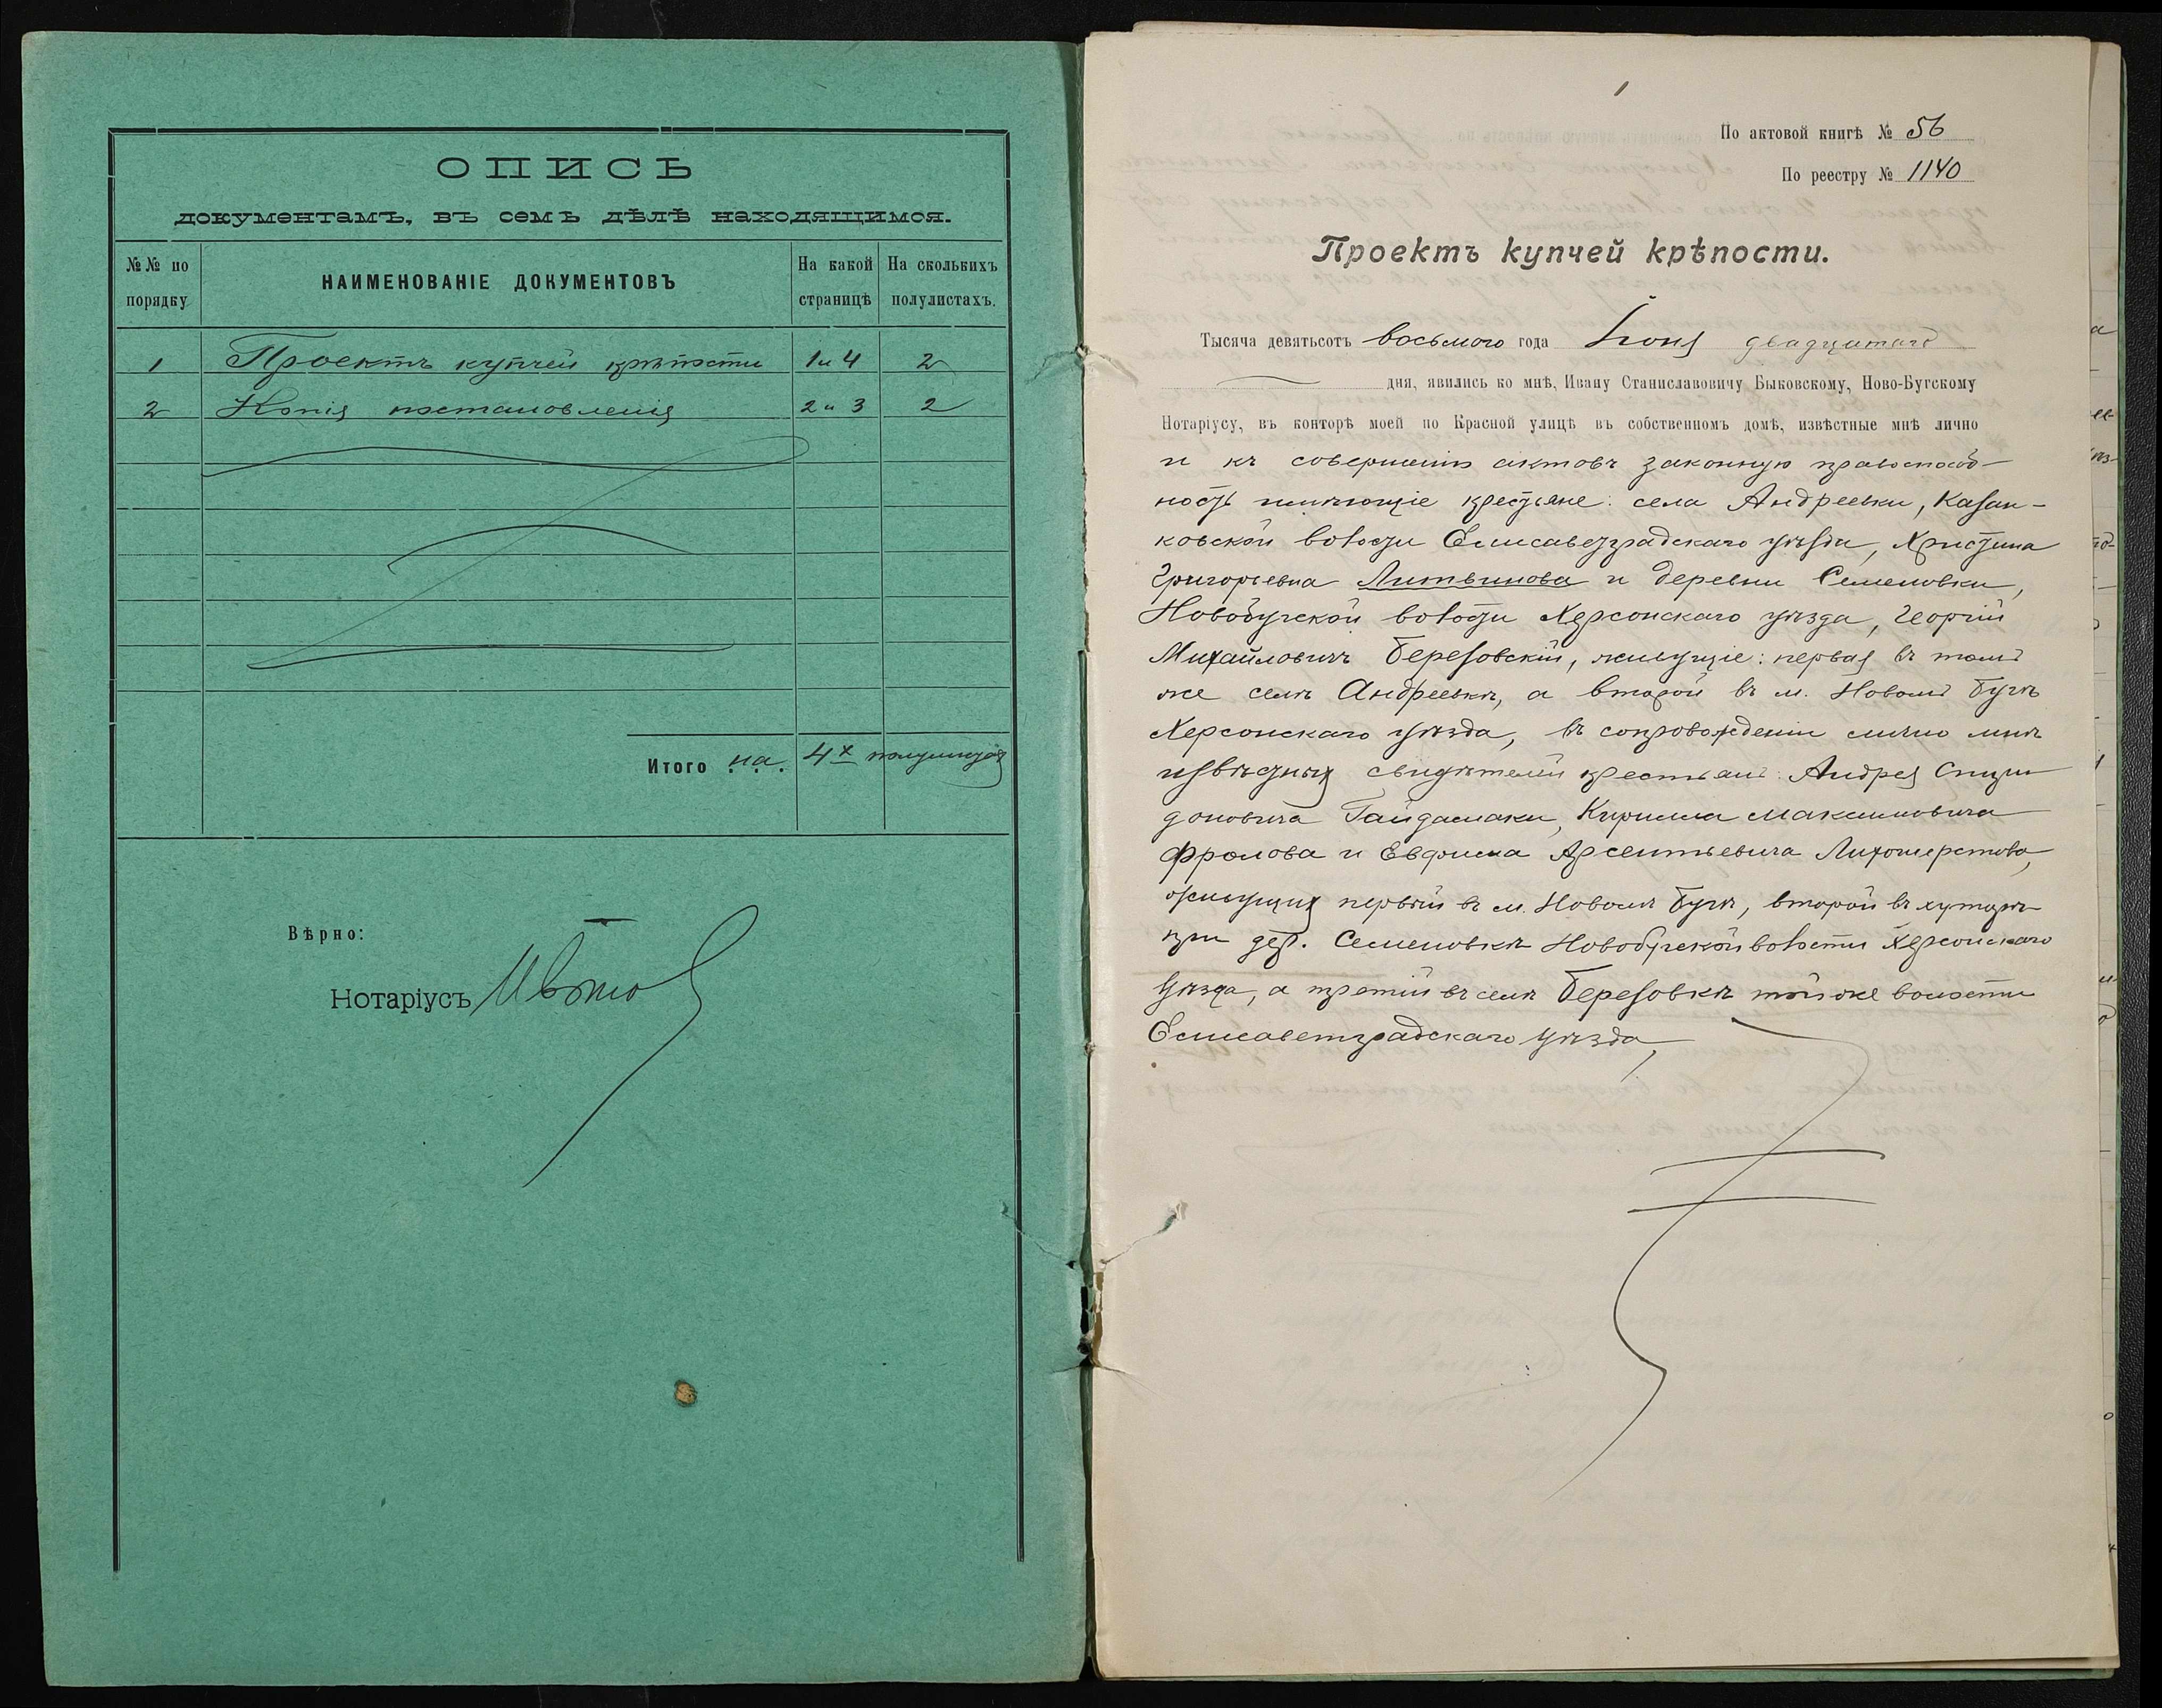 ОПИСЬ
документамъ, въ семъ дѣлѣ находящимся.
№№ по порядку
НАИМЕНОВАНІЕ ДОКУМЕНТОВЪ
На какой страницѣ
На сколькихъ полулистахъ.
1 Проектъ купчей крѣпости 1 и 4 2
2 Копія постановленія 2 и 3 2
Итого на 4х полулистахъ
Вѣрно:
Нотаріусъ
1
По актовой книгѣ № 56
По реестру № 1140
Проектъ купчей крѣпости.
Тысяча девятьсотъ восьмого года Іюня двадцатаго
дня, явились ко мнѣ, Ивану Станиславовичу Быковскому, Ново-Бугскому
Нотаріусу, въ конторѣ моей по Красной улицѣ въ собственномъ домѣ, извѣстные мнѣ лично
и къ совершенію актовъ законную правоспособ-
ность имѣющіе крестьяне: села Андреевки, Казан-
ковской волости Елисаветградскаго уѣзда, Христина
Григорьевна Литвинова и деревни Семеновки,
Новобугской волости Херсонскаго уѣзда, Георгій
Михайловичъ Березовскій, живущіе: первая въ томъ
же селѣ Андреевкѣ, а второй въ м. Новомъ Бугѣ
Херсонскаго уѣзда, въ сопровожденіи лично мнѣ
извѣстныхъ свидѣтелей крестьянъ: Андрея Спири
доновича Гайдамаки, Кирилла Максимовича
Фролова и Евфима Арсентьевича Лихошерстова,
живущихъ первый въ м. Новомъ Бугѣ, второй въ хуторѣ
при дер. Семеновкѣ Новобугской волости Херсонскаго
уѣзда, а третій въ селѣ Березовкѣ той же волости
Елисаветградскаго уѣзда,